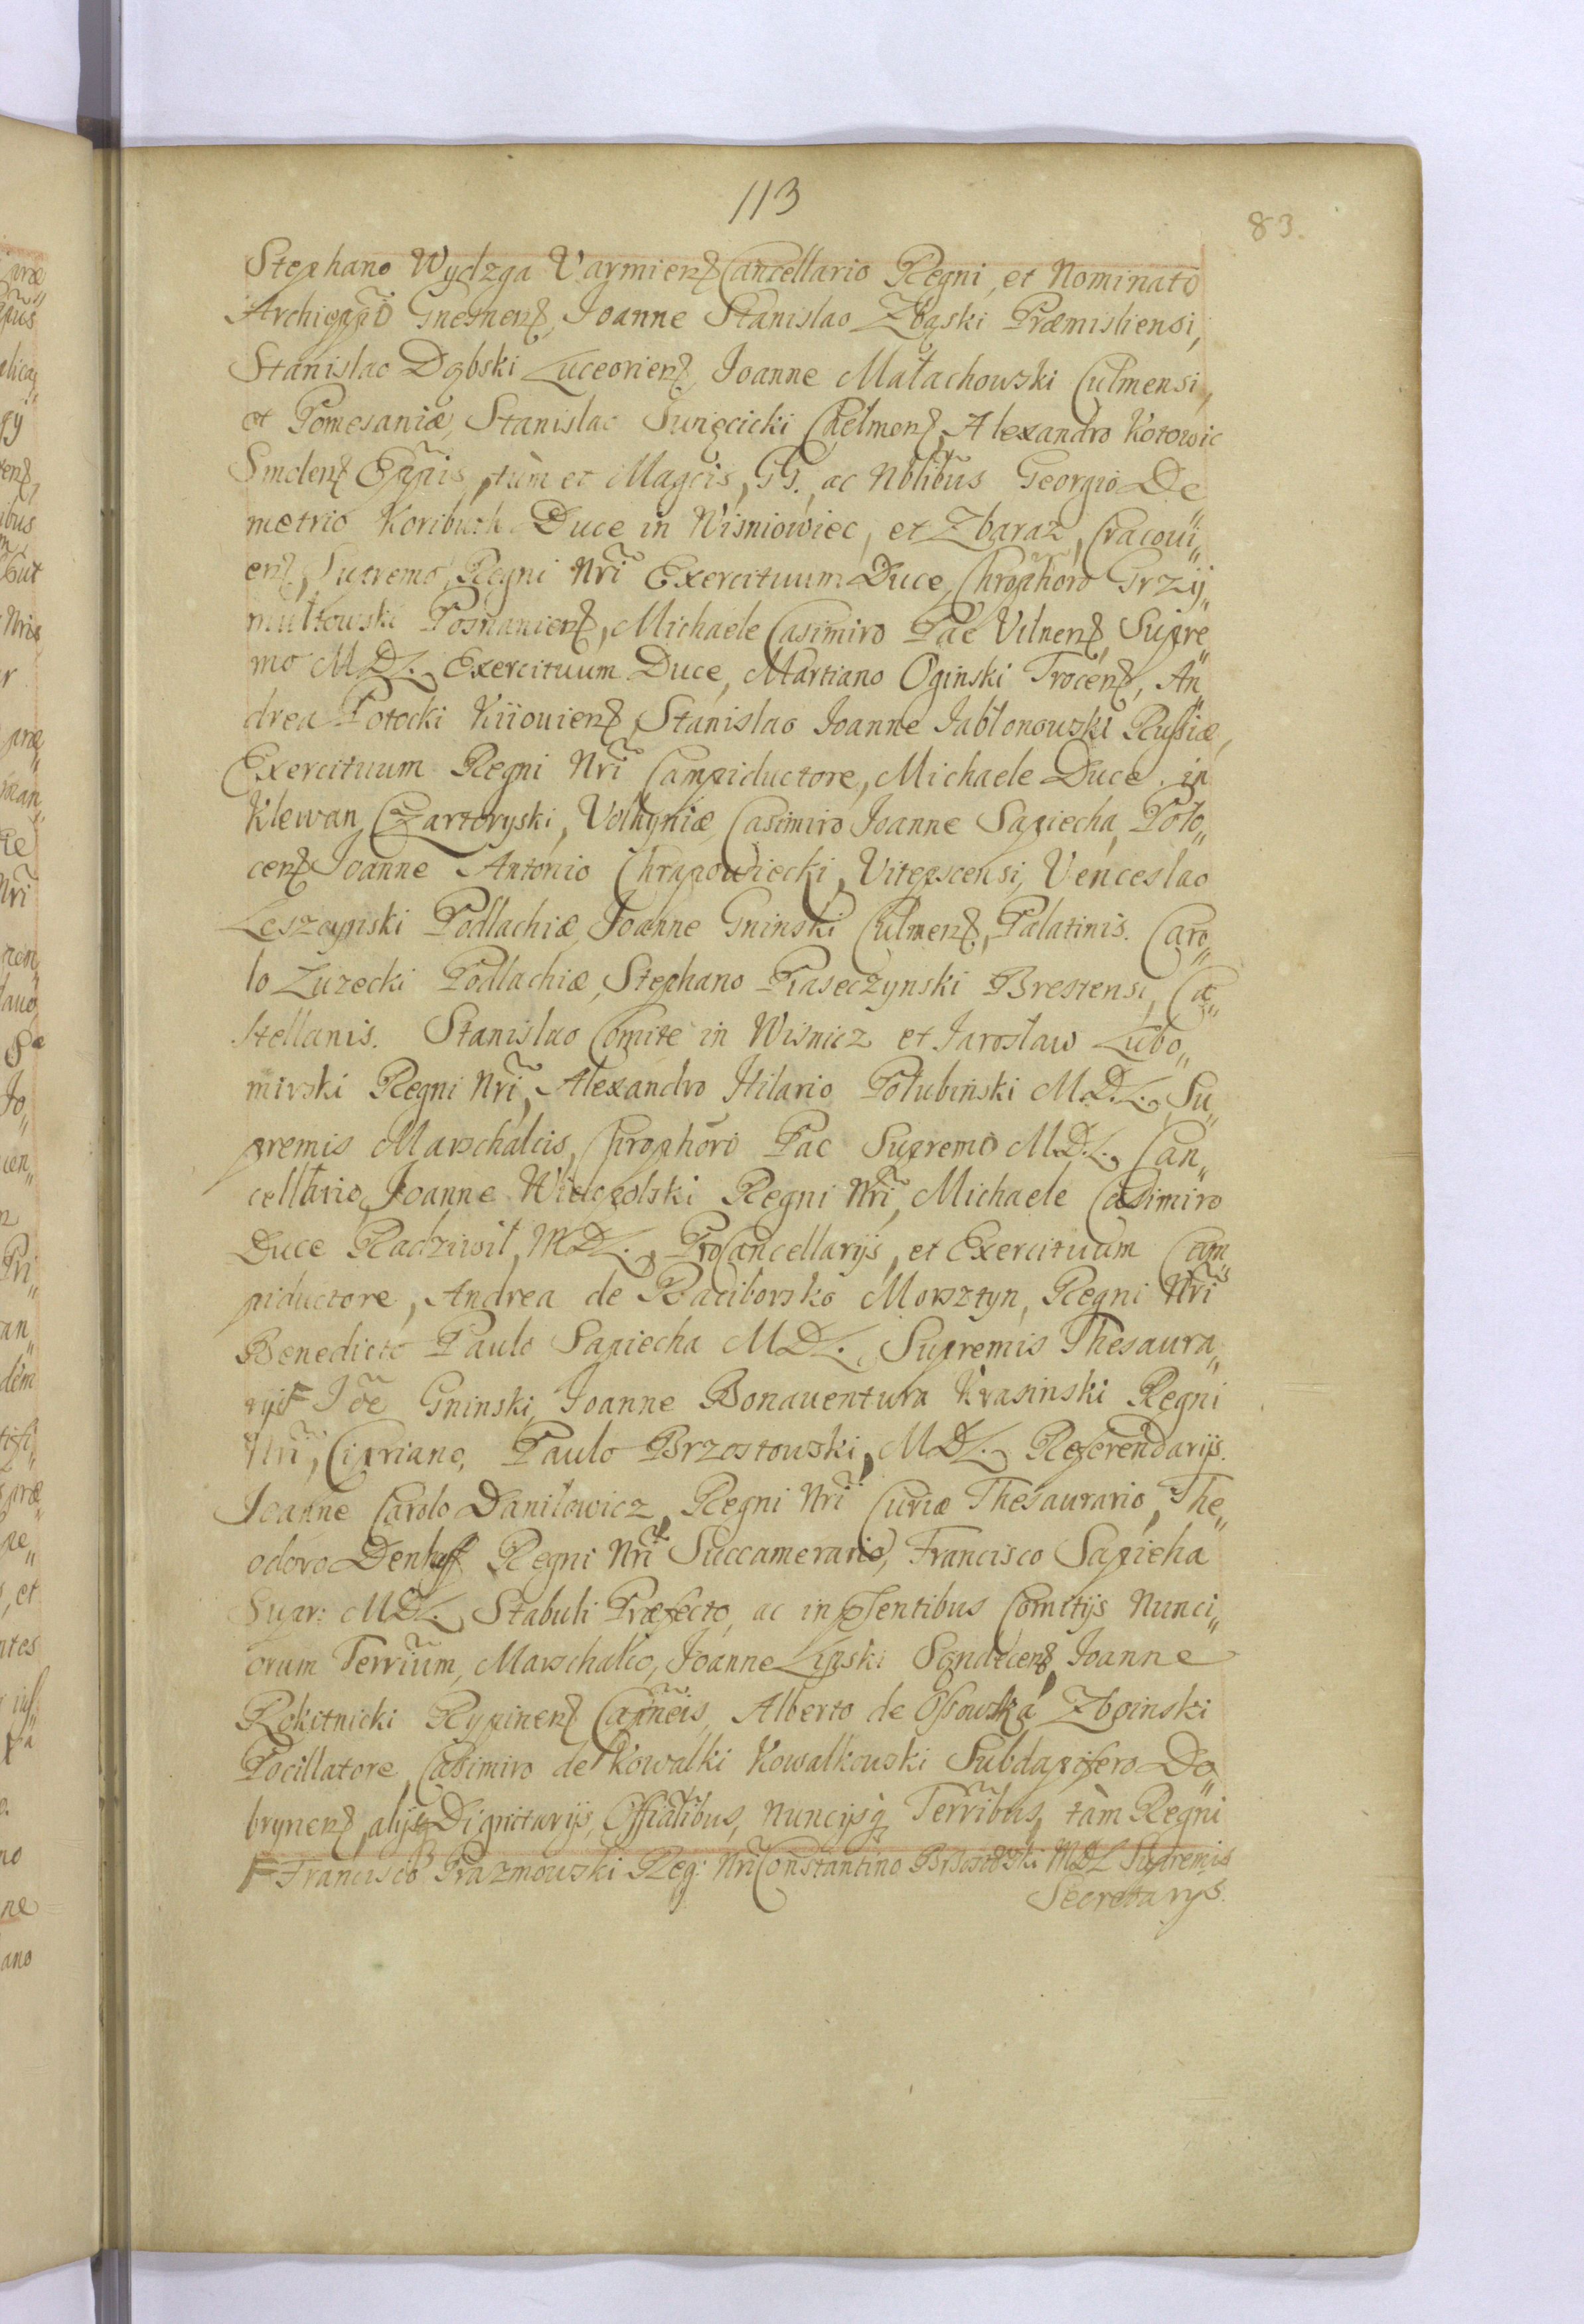 113
83.
Stephano Wydzga Varmienß Cancellario Regni, et Nominato
Archiepp̃o Gnesnenß, Joanne Stanislao Zbąski Præmisliensi,
Stanislao Dąbski Luceorienß, Joanne Małachowski Culmensi,
et Pomesaniæ, Stanislao Swięcicki Chełmenß, Alexandro Kotowic
Smolenß Epp̃is, tùm et Magcis, GG., ac Nobl̃ibus Georgio De„
metrio Koributh Duce in Wisniowiec, et Zbaraz, Cracoui„
enß, Supremo Regni Nr̃i Exercituum Duce, Chrophoro Grzy„
mułtowski Posnanienß, Michaele Casimiro Pac Vilnenß, Supre„
mo M.D.L. Exercituum Duce, Martiano Oginski Trocenß, An„
drea Potocki Kiiouienß, Stanislao Joanne Jabłonowski Russiæ,
Exercituum Regni Nr̃i Campiductore, Michaele Duce in
Klewan Czartoryski, Volhyniæ, Casimiro Joanne Sapiecha, Poło„
cenß Joanne Antonio Chrapowiecki, Vitepscensi, Venceslao
Leszczynski Podlachiæ, Joanne Gninski Culmenß, Palatinis. Caro„
lo Łuzecki Podlachiæ, Stephano Piaseczynski Brestensi, Ca„
stellanis. Stanislao Comite in Wisnicz et Jarosław Lubo„
mirski Regni Nr̃i, Alexandro Hilario Połubiński M.D.L. Su„
premis Marschalcis, Chrophoro Pac Supremo M.D.L. Can„
cellario, Joanne Wielopolski Regni Nr̃i, Michaele Casimiro
Duce Radziwił, M.D.L. ProCancellarijs, et Exercituum Cam„
piductore, Andrea de Raciborsko Morsztyn, Regni Nr̃i
Benedicto Paulo Sapiecha M.D.L. Supremis Thesaura„
rijs Jõe Gninski, Joanne Bonauentura Krasinski Regni
Nr̃i, Cipriano, Paulo Brzostowski, M.D.L. Referendarijs.
Joanne Carolo Daniłowicz, Regni Nr̃i Curiæ Thesaurario, The„
odoro Denhoff Regni Nr̃i Succamerario, Francisco Sapieha
Supr: M.D.L. Stabuli Præfecto, ac in pñsentibus Comitijs Nunci„
orum Terrium, Marschalco, Joanne Lipski Sandecenß, Joanne
Rokitnicki Rypinenß Capñeis, Alberto de Ossowka Zboinski
Pocillatore, Casimiro de Kowalki Kowalkowski Subdapifero Do„
brynenß, alijsq̃ Dignitarijs, Offialibus, Nuncijsq̃ Terribus, tàm Regni
Francisco Prazmowski Reg: Nr̃i Constantino Brzostowski MDL Supremis
Secretarys.